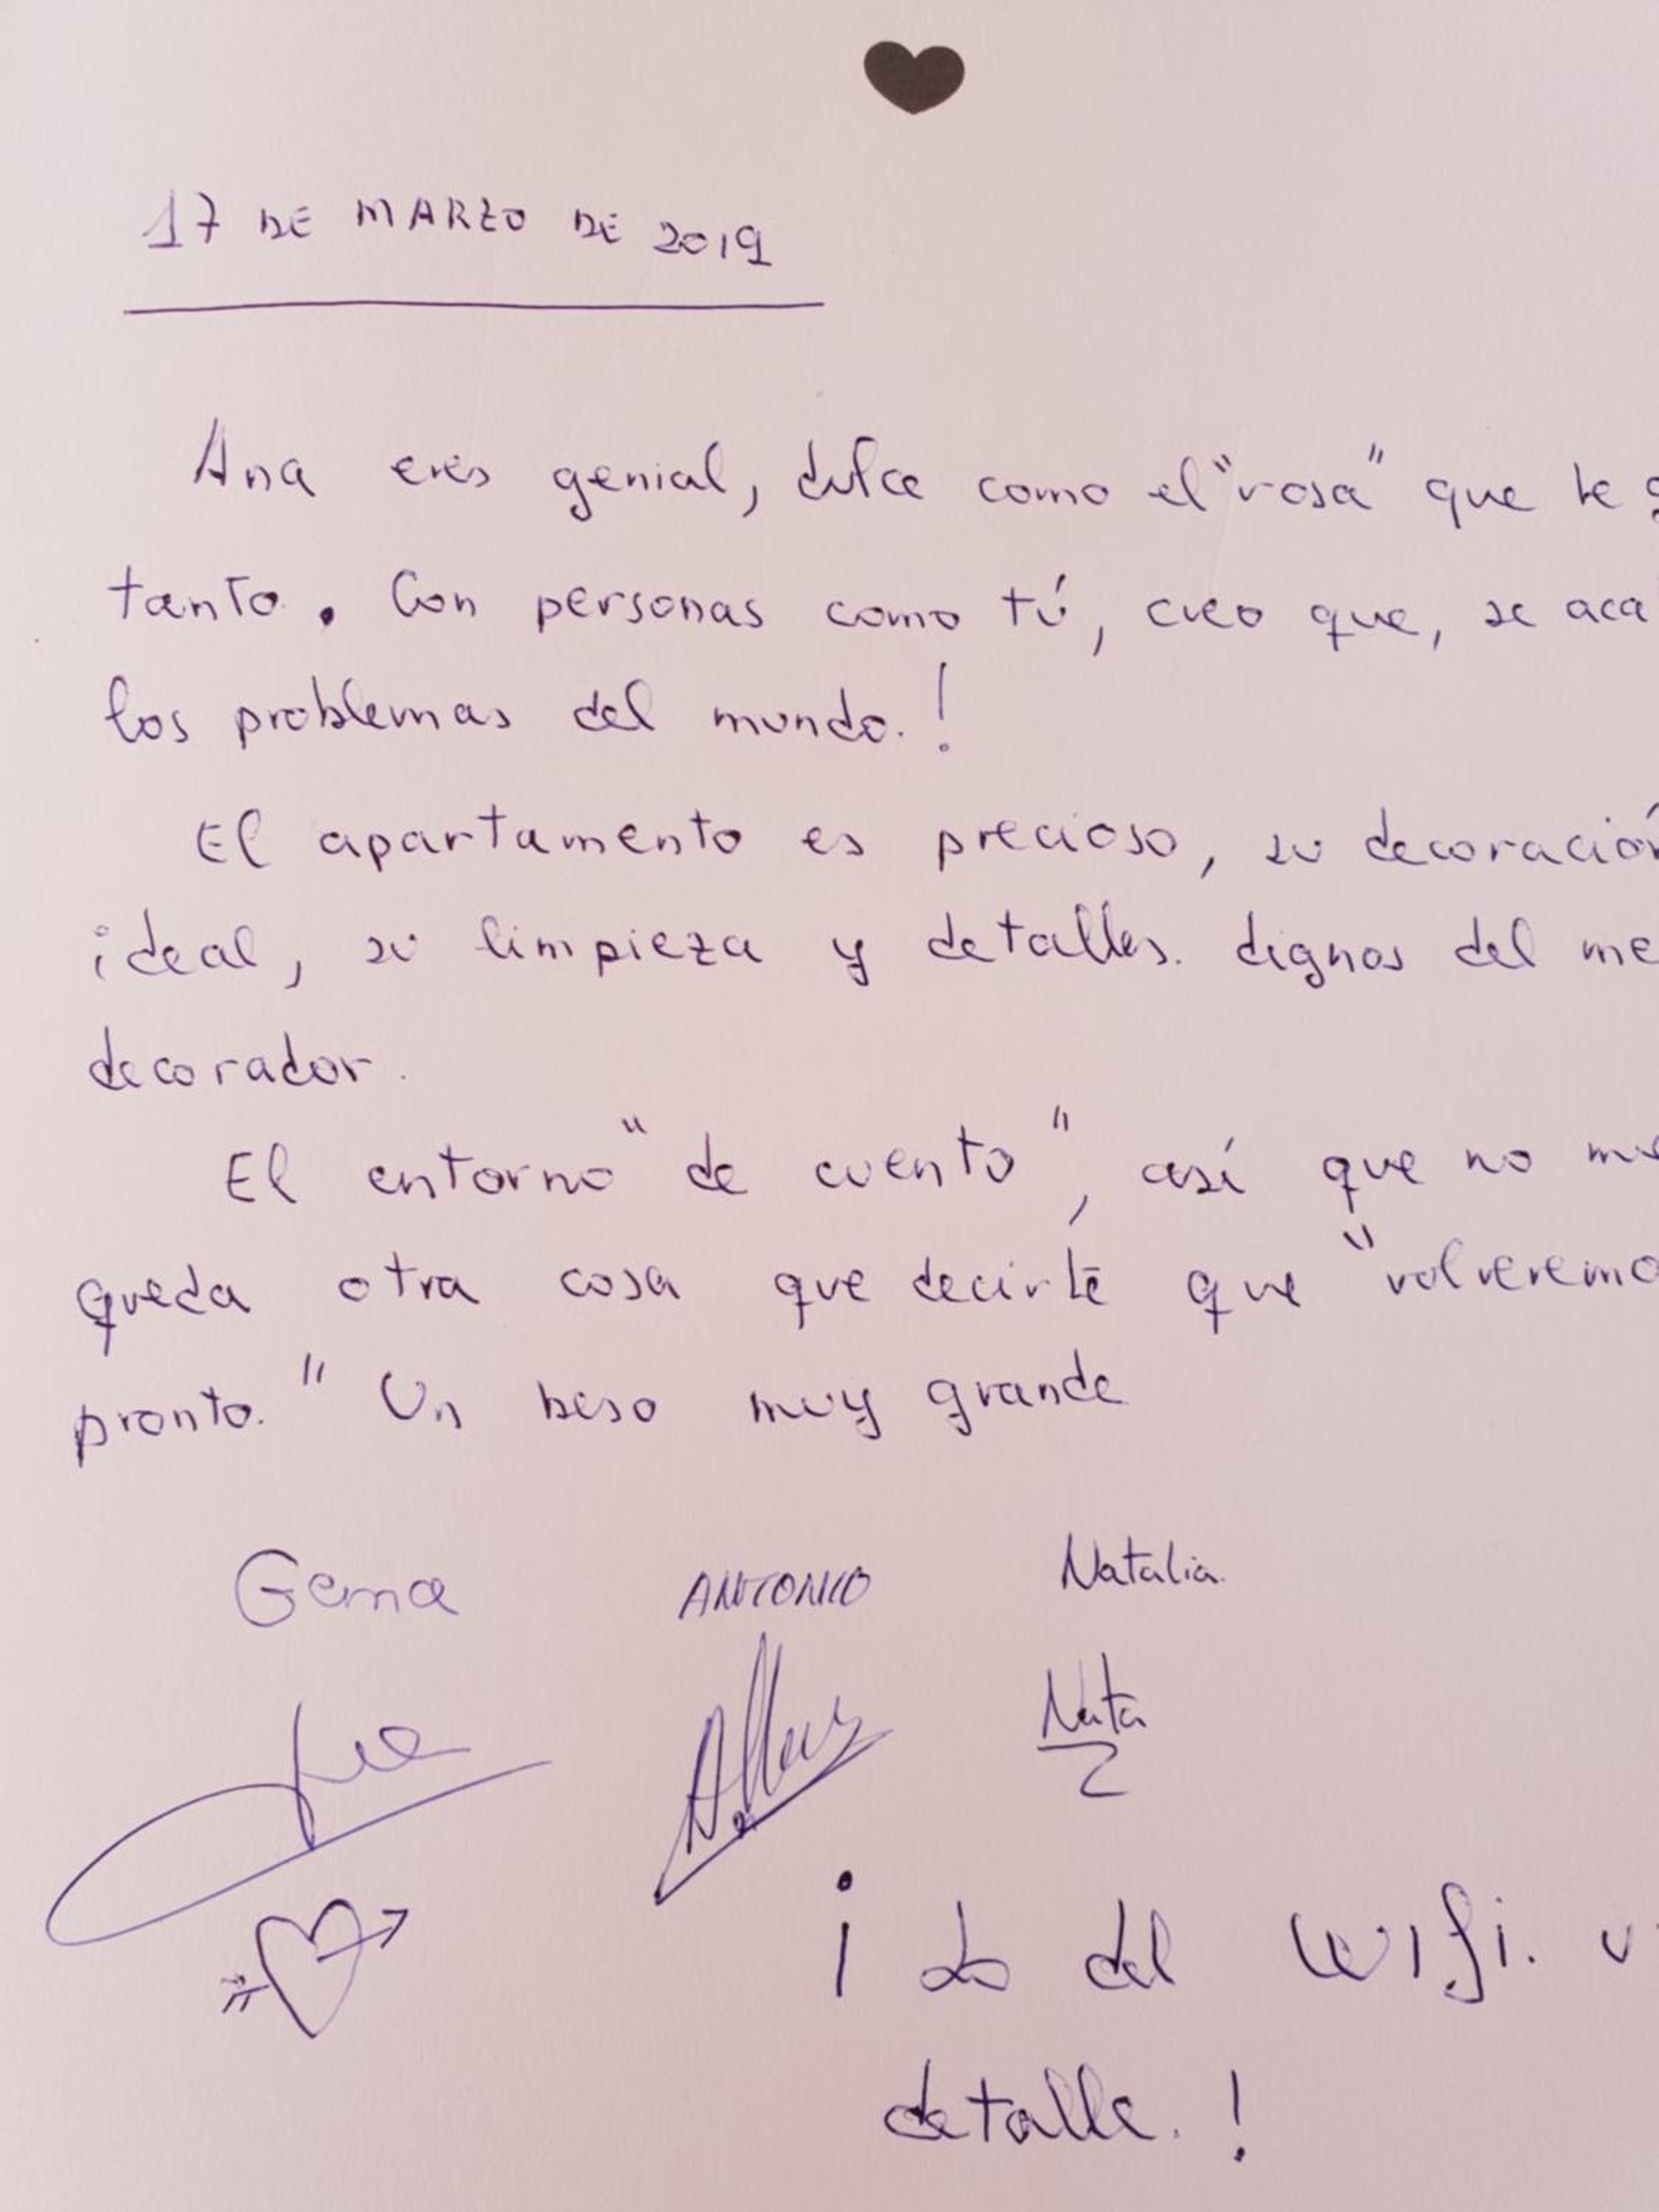 17 DE MARZO DE 2019
Ana eres genial, dulce como el "rosa" que te g
tanto. Con personas como tú, creo que, se aca
los problemas del mundo.!
El apartamento es precioso, su decoración
ideal, su limpieza y detalles. dignos del me
decorador.
El entorno "de cuento", así que no me
queda otra cosa que decirte que "volveremo
pronto." Un beso muy grande
Gema ANTONIO Natalia.
Nata
¡Lo del WIfi. u
detalle.!